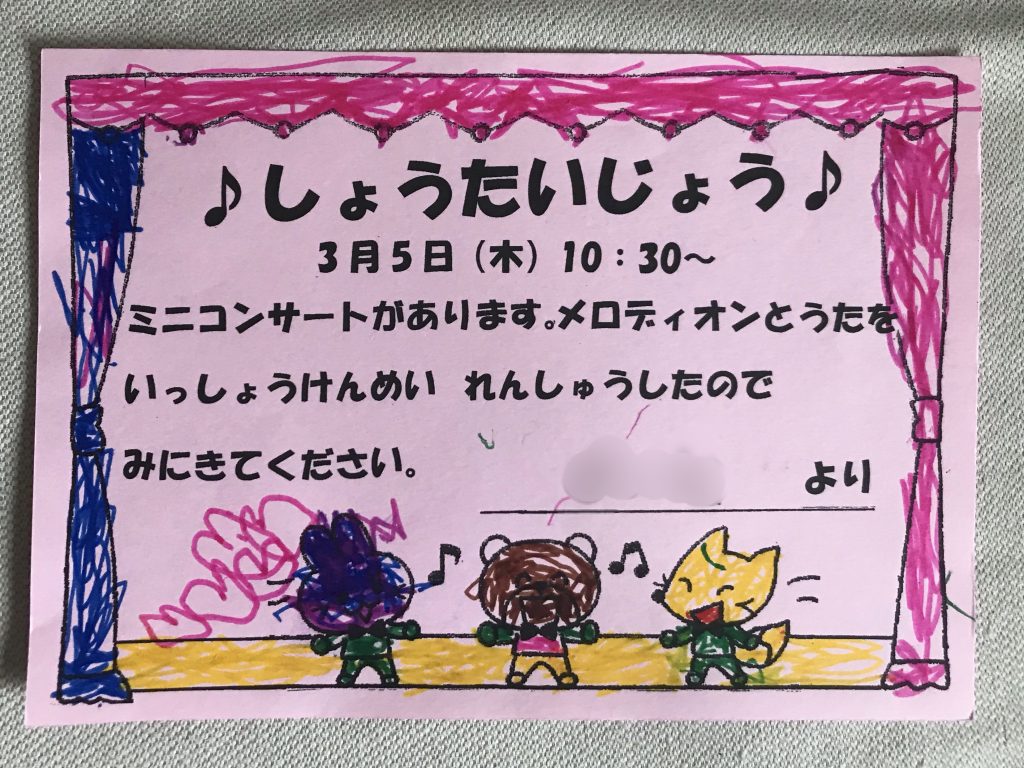 ♪しょうたいじょう♪
3月5日（木）10：30～
ミニコンサートがあります。メロディオンとうたを
いっしょうけんめい　れんしゅうしたので
みにきてください。
より